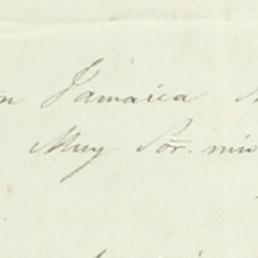 n Jamaica
Muy Sor. mio